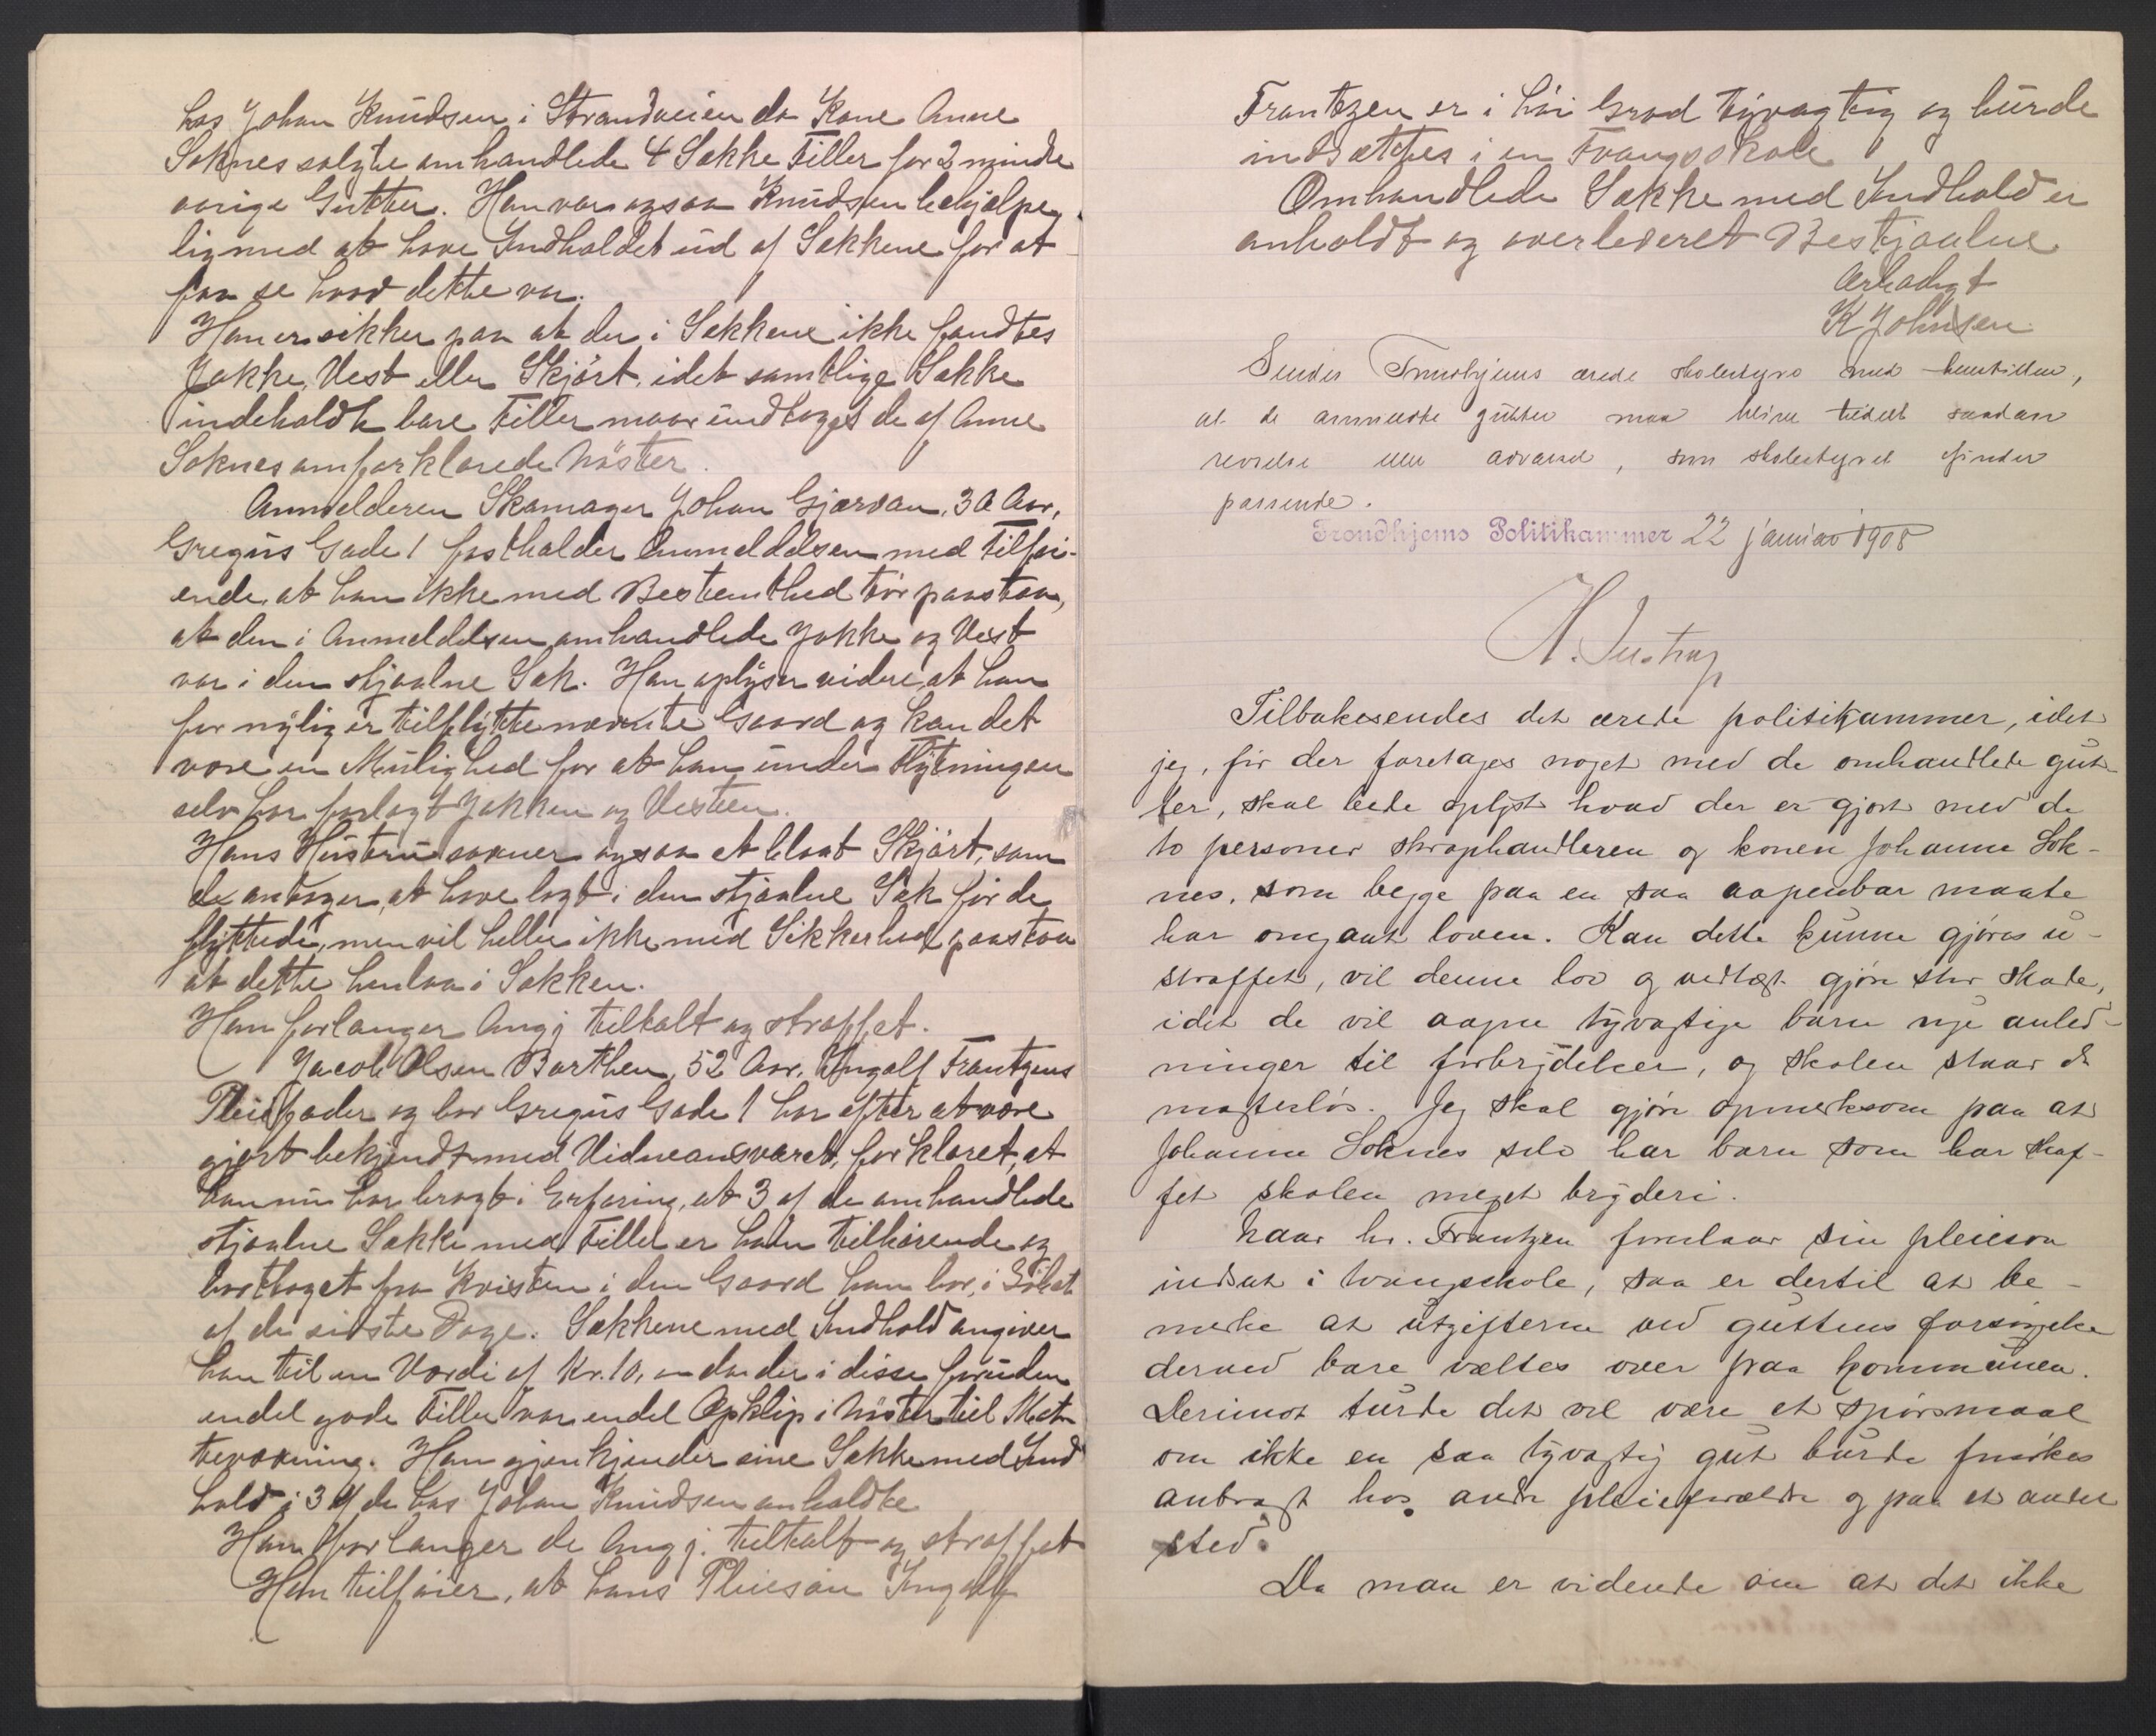 hos Johan Knudsen i Strandveien da Kone Anne
Soknes solgte omhandlede 4 Sække Filler for 2 mindre
aarige Gutter. Han var ogsaa Knudsen behjælpe
lig med at have Indholdet ud af Sækkene for at
faa se hvad dette var.
Han er sikker paa at der i Sækkene ikke fandtes
Jakke, Vest eller Skjört, idet samtlige Sække
indeholdt bare Filler naar undtages de af Anne
Soknes omforklarede Nöster.
Anmelderen Skomager Johan Gjærvan, 30 Aar,
Gregus Gade 1 fastholder Anmeldelsen med Tilföi-
ende, at han ikke med Bestemthed tör paastaa,
at den i Anmeldelsen omhandlede Jakke og Vest
var i den stjaalne Sæk. Han oplyser videre, at han
for nylig er tilflyttet nævnte Gaard og kan det
være en Mulighed for at han under Flytningen
selv har forlagt Jakken og Vesten.
Hans Hustru savner ogsaa et blaat Skjört, som
de antager, at have lagt i den stjaalne Sæk för de
flyttede, men vil heller ikke med Sikkerhed paastaa
at dette henlaa i Sækken.
Han forlanger Angj tiltalt og straffet.
Jacob Olsen Barthen, 52 Aar, Ingolf Frantzens
Pleiefader og bor Gregus Gade 1 har efter at være
gjort bekjendt med Vidneansvaret, forklaret, at
han nu har bragt i Erfaring, at 3 af de omhandlede
stjaalne Sække med Filler er ham tilhörende og
borttaget fra Kvisten i den Gaard han bor, i Löbet
af de sidste Dage. Sækkene med Indhold angiver
han til en Værdi af Kr. 10, da der i disse foruden
endel gode Filler var endel Opklip i Nöster til Mat-
tevævning. Han gjenkjender sine Sække med Ind
hold i 3 af de hos Johan Knudsen anholdte
Han forlanger de Angj. tiltalt og straffet
Han tilföier, at hans Pleiesön Ingolf
Frantzen er i höi Grad tyvagtig og burde
indsættes i en Tvangsskole
Omhandlede Sække med Indhold er
anholdt og overleveret Bestjaalne
Ærbödigt
K Johnsen
Sendes Trondhjems ærede skolestyre med henstillen,
at de anmeldte gutter maa blive tildelt saadan
revselse eller advarsel, som skolestyret finder
passende.
Trondhjems Politikammer 22 januar 1908
Tilbakesendes det ærede politikammer, idet
jeg, för der foretages noget med de omhandlede gut-
ter, skal bede oplyst hvad der er gjort med de
to personer skraphandleren og konen Johanne Sok-
nes, som begge paa en saa aapenbar maate
har omgaat loven. Kan dette kunne gjöres u-
straffet, vil denne lov og vedtægt gjöre stor skade,
idet de vil aapne tyvagtige barn nye anled-
ninger til forbrydelser, og skolen staar da
magteslös. Jeg skal gjöre opmerksom paa at
Johanne Soknes selv har barn som har skaf-
fet skolen meget bryderi.
Naar hr. Frantzen foreslaar sin pleiesön
indsat i tvangsskole, saa er dertil at be-
merke at utgifterne ved guttens forsörgelse
derved bare væltes over paa kommunen.
Derimot turde det vel være et spörsmaal
om ikke en saa tyvagtig gut burde forsökes
anbragt hos andre pleieforældre og paa et andet
sted.
Da man er vidende om at det ikke